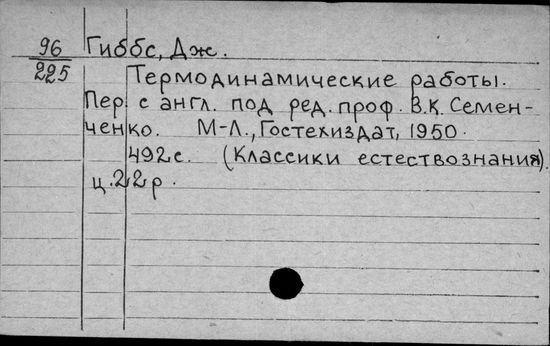 96 Гиббс, Дж.
225 Термодинамические работы.
Пер с англ. под ред. проф. В.К. Семен-
ченко. М-Л., Гостехиздат, 1950.
492с. (Классики естествознания).
ц. 22р.